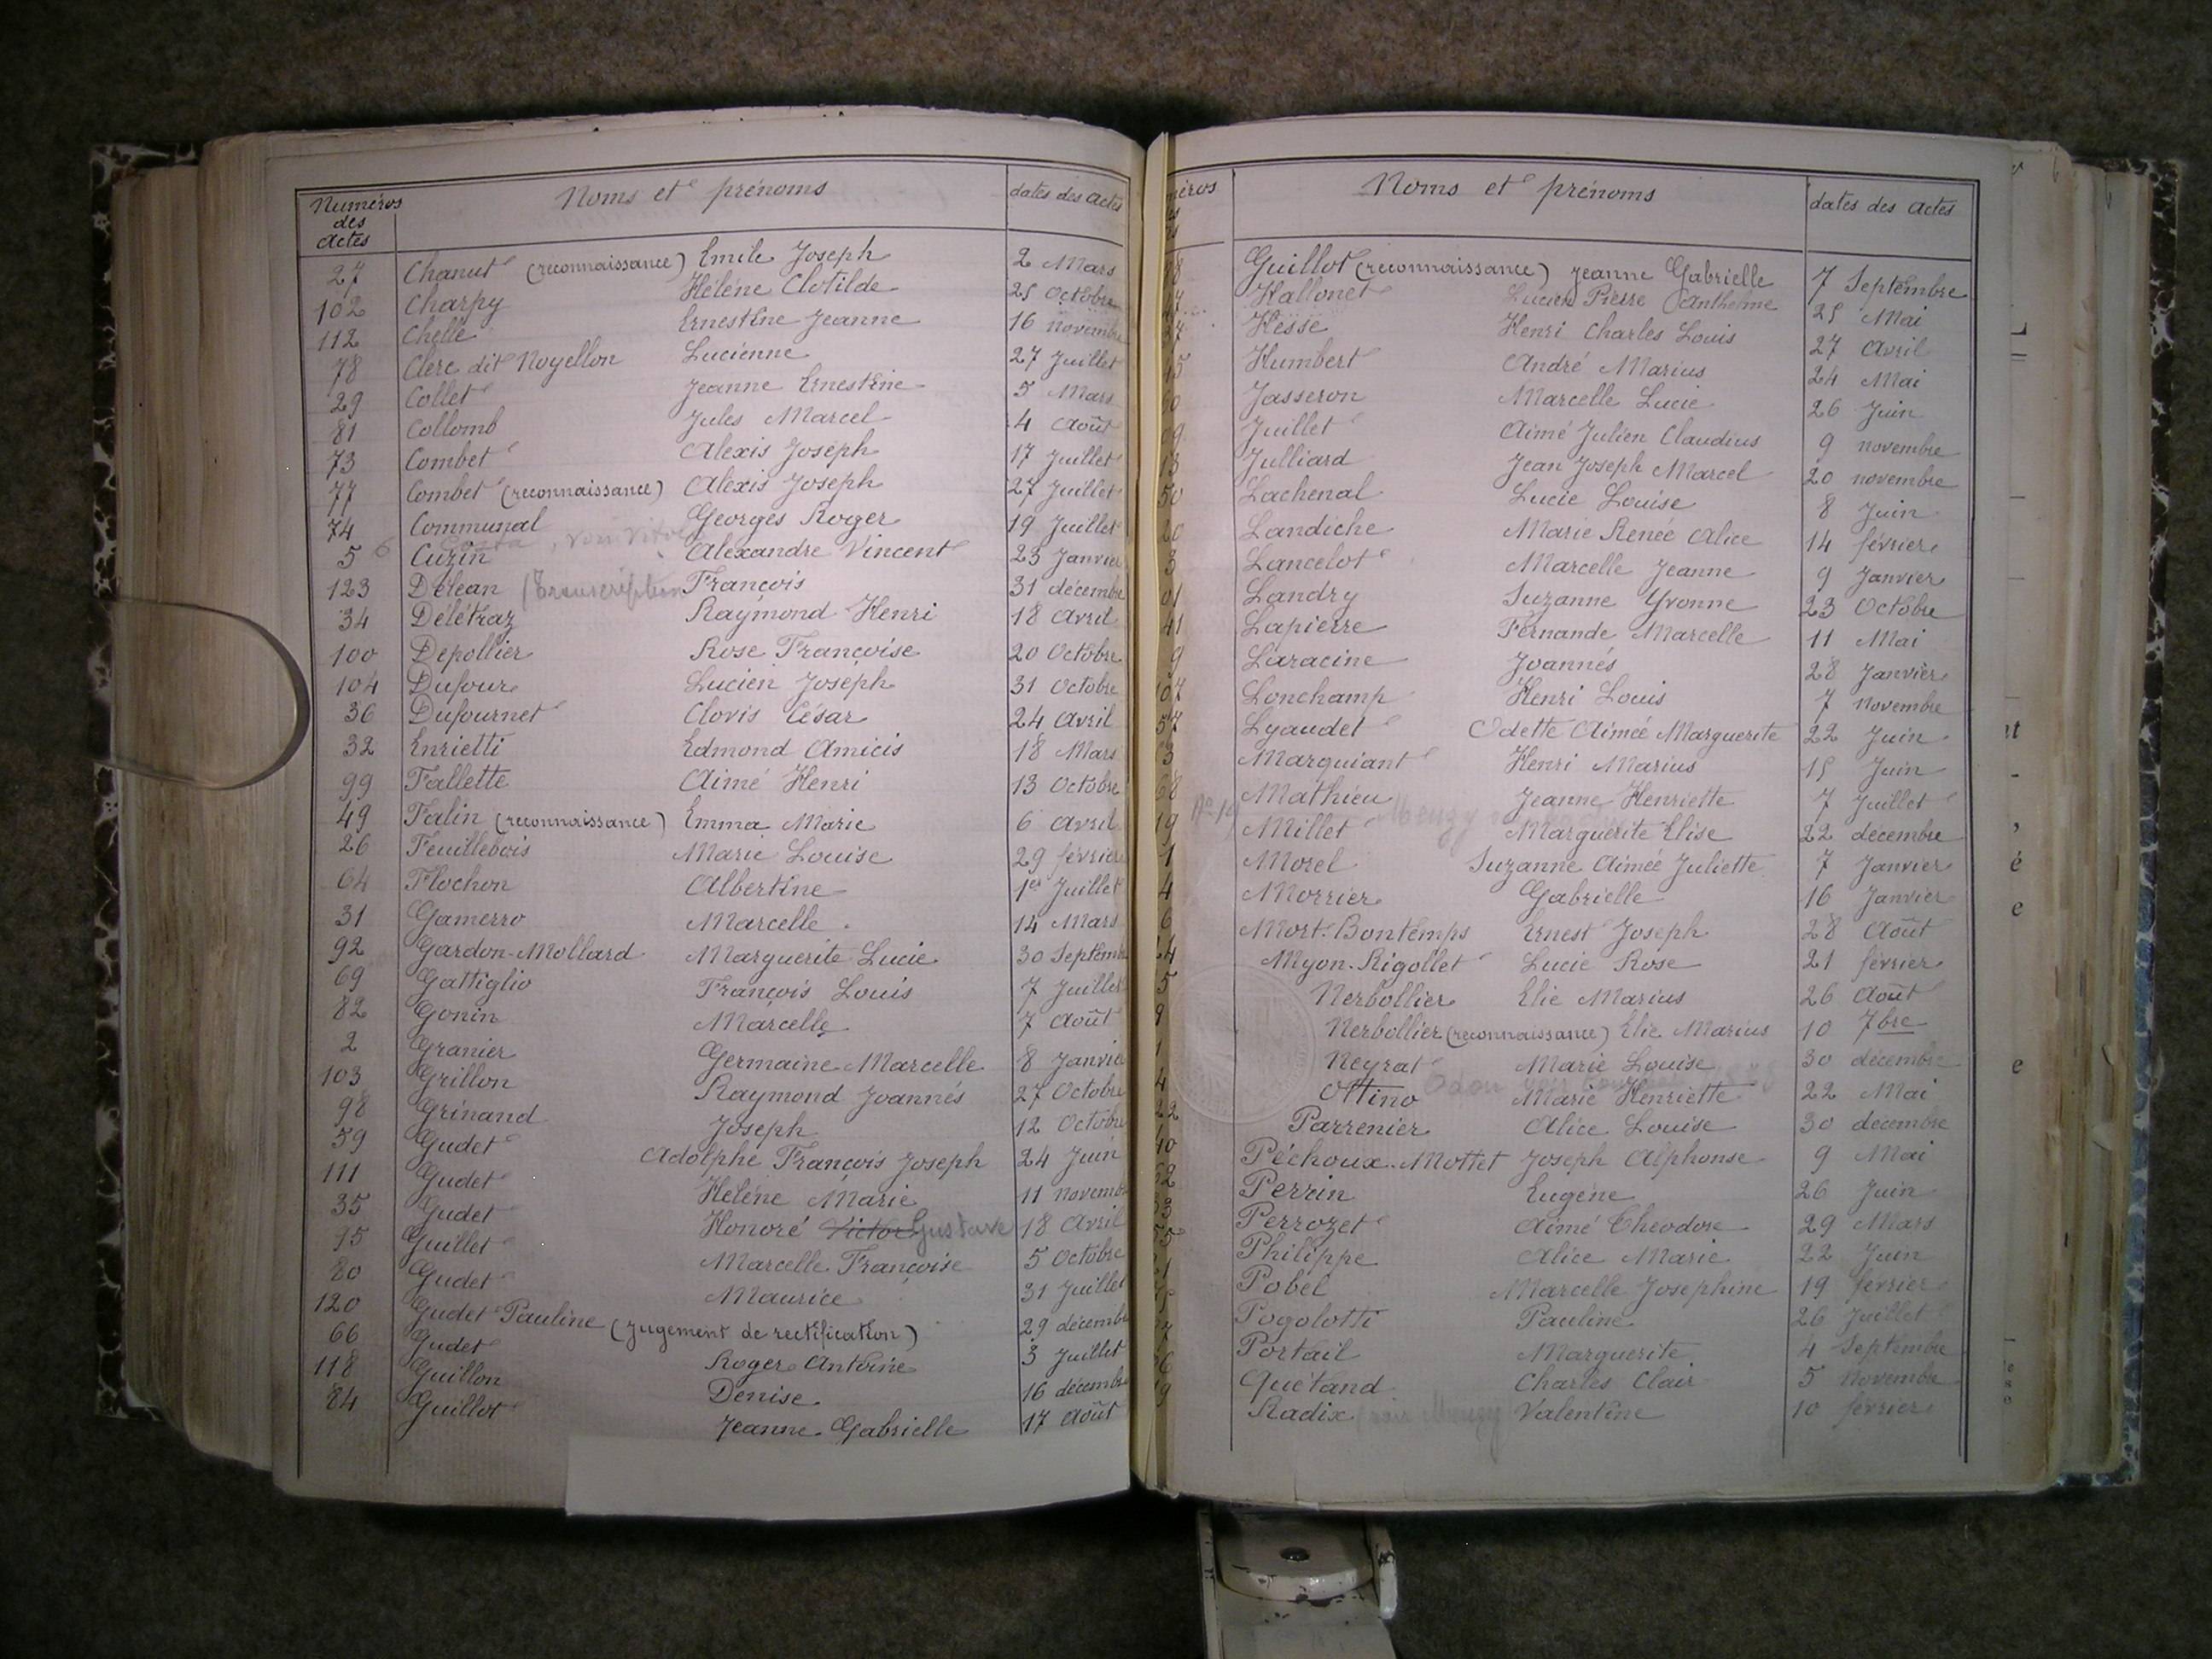 Numéros des actes Noms et prénoms dates des actes
27 Chanut (reconnaissance) Emile Joseph 2 Mars
102 Charpy Hélène Clotilde 25 Octobre
112 Chelle Ernestine Jeanne 16 novembre
78 Clerc dit Noyellon Lucienne 27 Juillet
29 Collet Jeanne Ernestine 5 Mars
81 Collomb Jules Marcel 4 Août
73 Combet Alexis Joseph 17 Juillet
77 Combet (reconnaissance) Alexis Joseph 27 Juillet
74 Communal Georges Roger 19 Juillet
5 6 Cuzin Alexandre Vincent 23 Janvier
123 Délean (Transcription François 31 décembre
34 Délétraz Raymond Henri 18 Avril
100 Depollier Rose Françoise 20 Octobre
104 Dufour Lucien Joseph 31 Octobre
36 Dufournet Clovis César 24 Avril
32 Enrietti Edmond Amicis 18 Mars
99 Fallette Aimé Henri 13 Octobre
49 Falin (reconnaissance) Emma Marie 6 Avril
26 Feuillebois Marie Louise 29 février
64 Flochon Albertine 1er Juillet
31 Gamerro Marcelle 14 Mars
92 Gardon-Mollard Marguerite Lucie 30 Septemb
69 Gattiglio François Louis 7 Juillet
82 Gonin Marcelle 7 Août
2 Granier Germaine Marcelle 8 Janvie
103 Grillon Raymond Joannés 27 Octobre
98 Grinand Joseph 12 Octobre
59 Gudet Adolphe François Joseph 24 Juin
111 Gudet Hélène Marie 11 novemb
35 Gudet Honoré Victor Gustave 18 Avril
95 Guillet Marcelle Françoise 5 Octobre
80 Gudet Maurice 31 Juillet
120 Gudet Pauline (Jugement de rectification) 29 décemb
66 Gudet Roger Antoine 3 Juillet
118 Guillon Denise 16 décemb
84 Guillot Jeanne Gabrielle 17 Août
méros Noms et prénoms dates des actes
Guillot (reconnaissance) Jeanne Gabrielle 7 Septembre
Hallonet Lucien Pierre Anthelme 25 Mai
Hesse Henri Charles Louis 27 Avril
Humbert André Marius 24 Mai
Jasseron Marcelle Lucie 26 Juin
Juillet Aimé Julien Claudius 9 novembre
13 Julliard Jean Joseph Marcel 20 novembre
50 Lachenal Lucie Louise 8 Juin
20 Landiche Marie Renée Alice 14 février
3 Lancelot Marcelle Jeanne 9 Janvier
01 Landry Suzanne Yvonne 23 Octobre
41 Lapierre Fernande Marcelle 11 Mai
9 Laracine Joannés 28 Janvier
107 Lonchamp Henri Louis 7 novembre
57 Lyaudet Odette Aimée Marguerite 22 Juin
3 Marquiant Henri Marius 15 Juin
68 Mathieu Jeanne Henriette 7 Juillet
19 Millet Marguerite Elise 22 décembre
1 Morel Suzanne Aimée Juliette 7 Janvier
4 Morrier Gabrielle 16 Janvier
6 Mort-Bontemps Ernest Joseph 28 Août
24 Myon-Rigollet Lucie Rose 21 février
5 Nerbollier Elie Marius 26 Août
9 Nerbollier (reconnaissance) Elie Marius 10 7bre
1 Neyrat Marie Louise 30 décembre
4 Ottino Marie Henriette 22 Mai
22 Parrenier Alice Louise 30 décembre
40 Péchoux-Mottet Joseph Alphonse 9 Mai
62 Perrin Eugène 26 Juin
33 Perrozet Aimé Théodore 29 Mars
55 Philippe Alice Marie 22 Juin
Pobel Marcelle Joséphine 19 février
Pogolotti Pauline 26 Juillet
Portail Marguerite 4 Septembre
Quétand Charles Clair 5 novembre
Radix voir Valentine 10 février